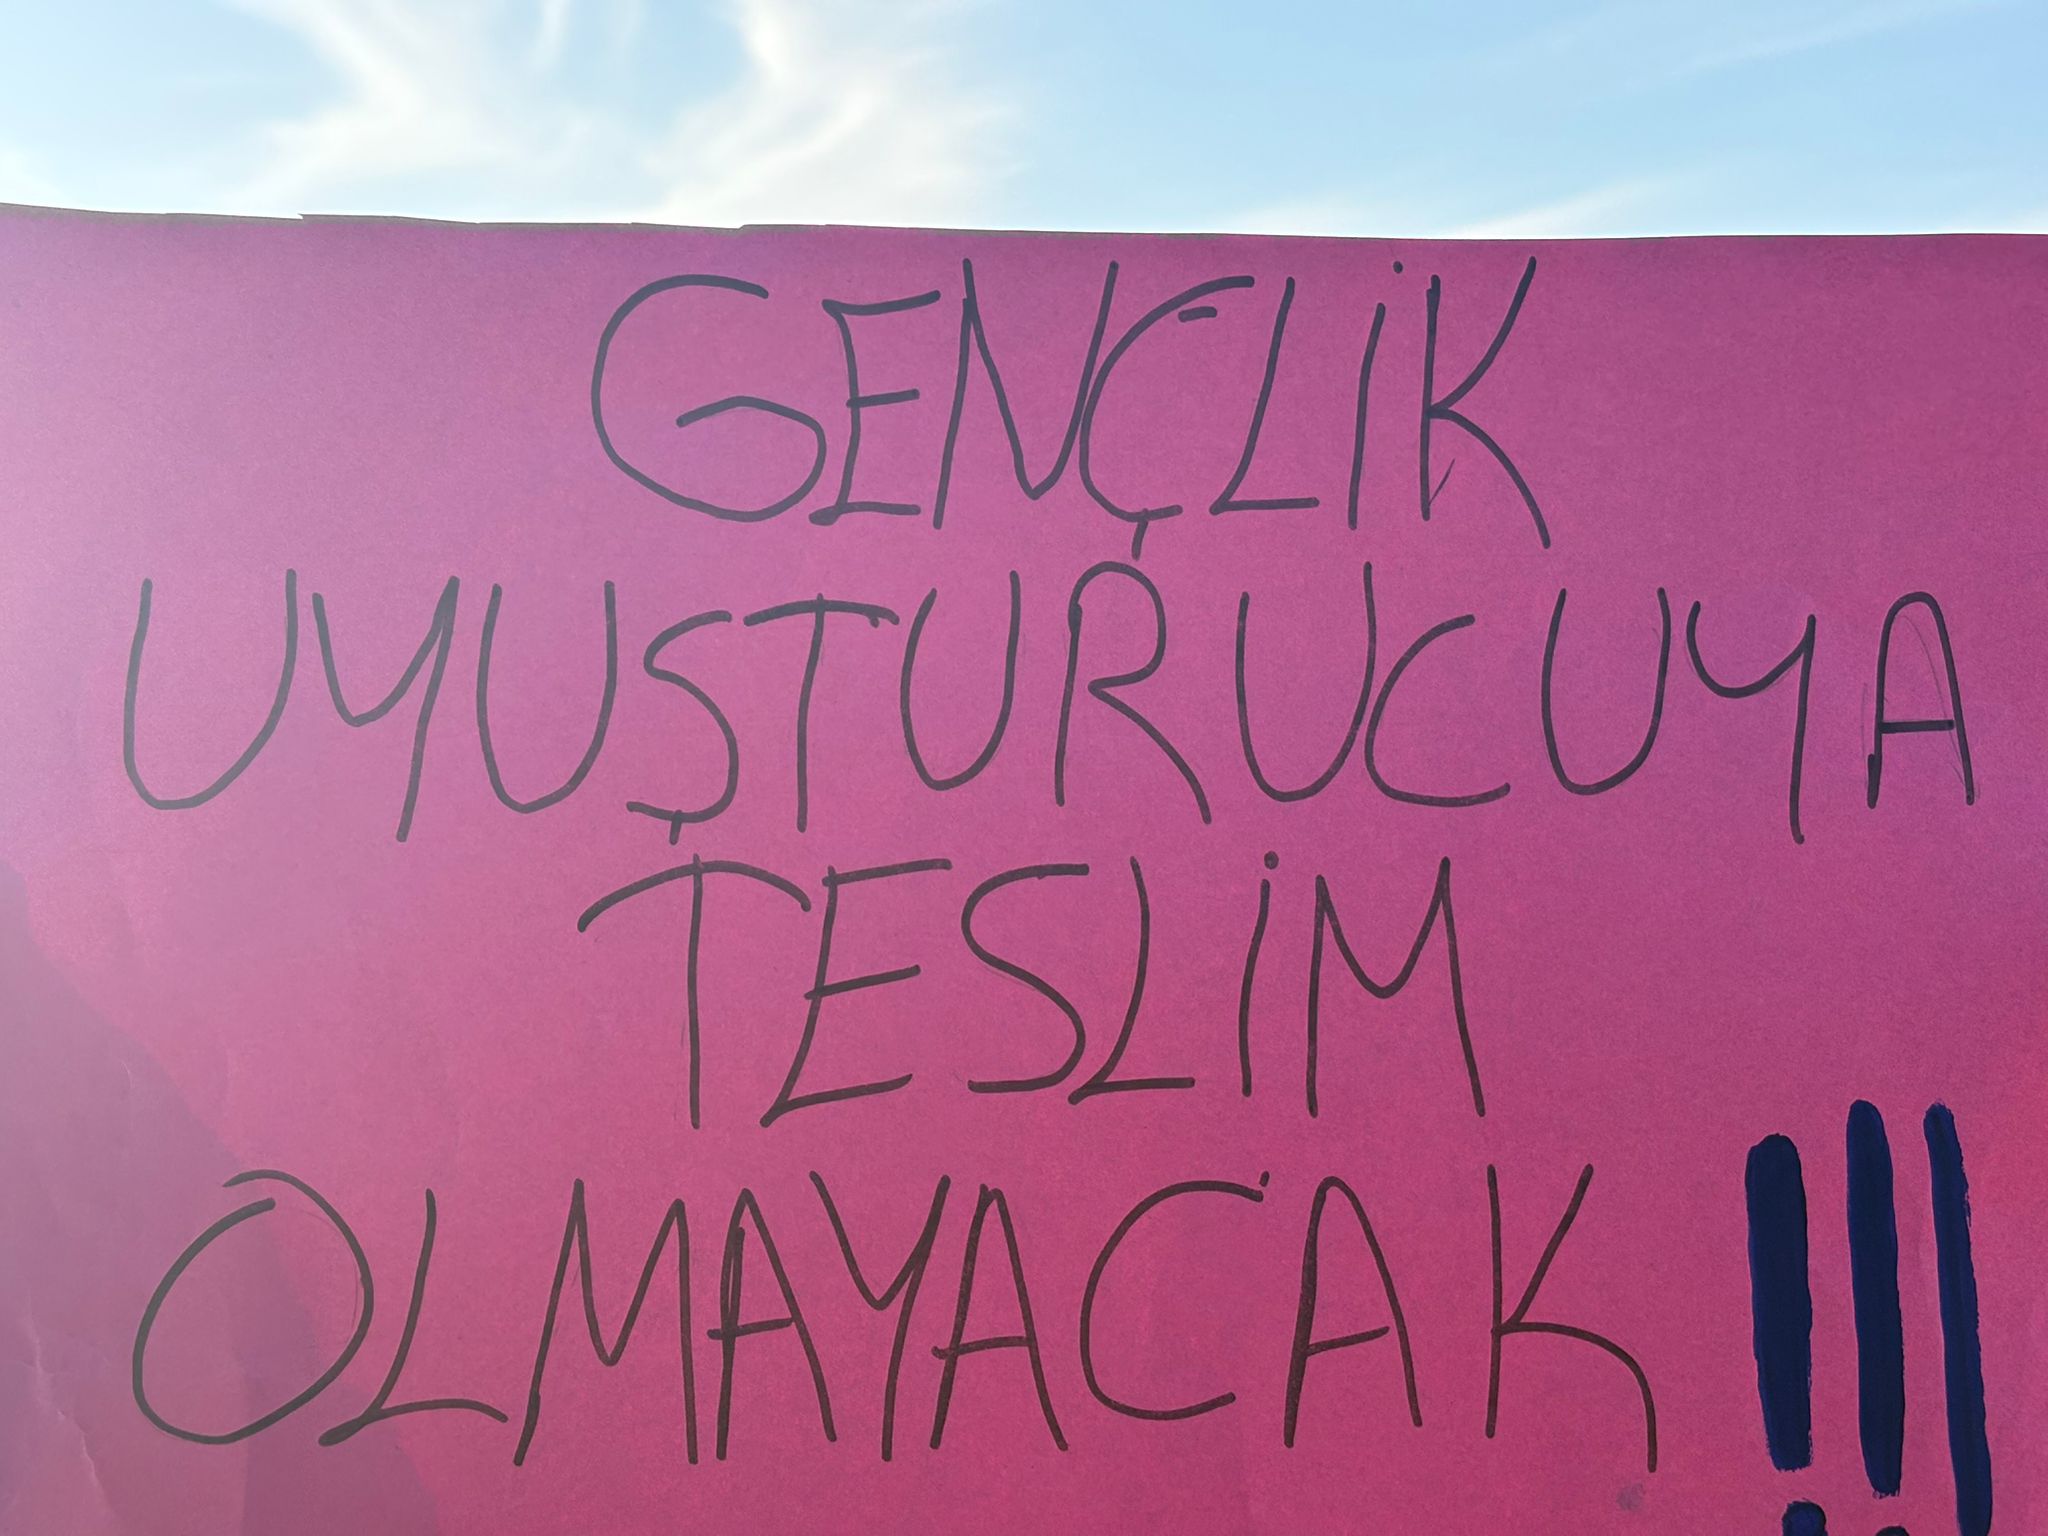 GENÇLİK
UYUŞTURUCUYA
TESLİM
OLMAYACAK !!!